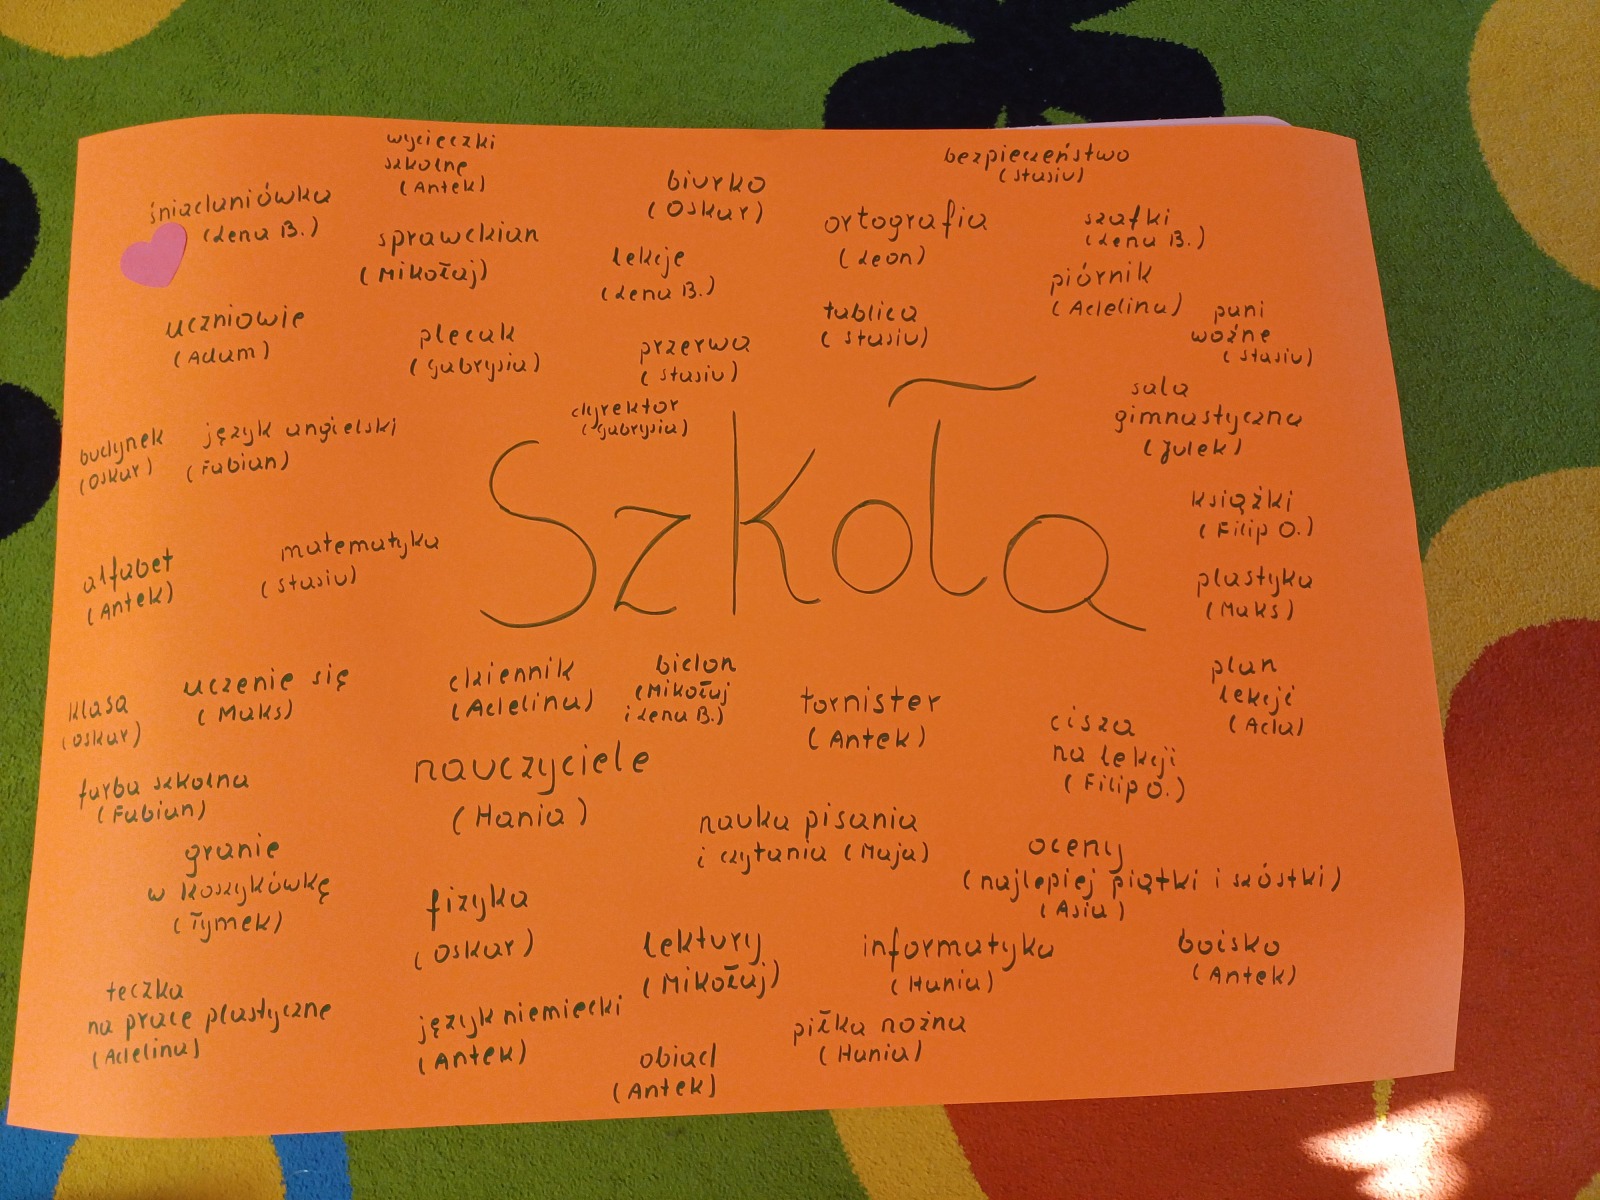 wycieczki
szkolne
(Antek)
śniadaniówka
(Lena B.)
sprawdzian
(Mikołaj)
biurko
(Oskar)
lekcje
(Lena B.)
bezpieczeństwo
(Stasiu)
ortografia
(Leon)
szafki
(Lena B.)
piórnik
(Adelina)
tablica
(Stasiu)
pani
woźne
(Stasiu)
uczniowie
(Adam)
plecak
(Gabrysia)
przerwa
(Stasiu)
dyrektor
(Gabrysia)
sala
gimnastyczna
(Julek)
budynek
(Oskar)
język angielski
(Fabian)
Szkoła
książki
(Filip O.)
alfabet
(Antek)
matematyka
(Stasiu)
plastyka
(Maks)
klasa
(Oskar)
uczenie się
(Maks)
dziennik
(Adelina)
bidon
(Mikołaj
i Lena B.)
tornister
(Antek)
cisza
na lekcji
(Filip O.)
plan
lekcji
(Ada)
farba szkolna
(Fabian)
nauczyciele
(Hania)
nauka pisania
i czytania (Maja)
oceny
(najlepiej piątki i szóstki)
(Asia)
granie
w koszykówkę
(Tymek)
fizyka
(Oskar)
lektury
(Mikołaj)
informatyka
(Hania)
boisko
(Antek)
teczka
na prace plastyczne
(Adelina)
język niemiecki
(Antek)
obiad
(Antek)
piłka nożna
(Hania)